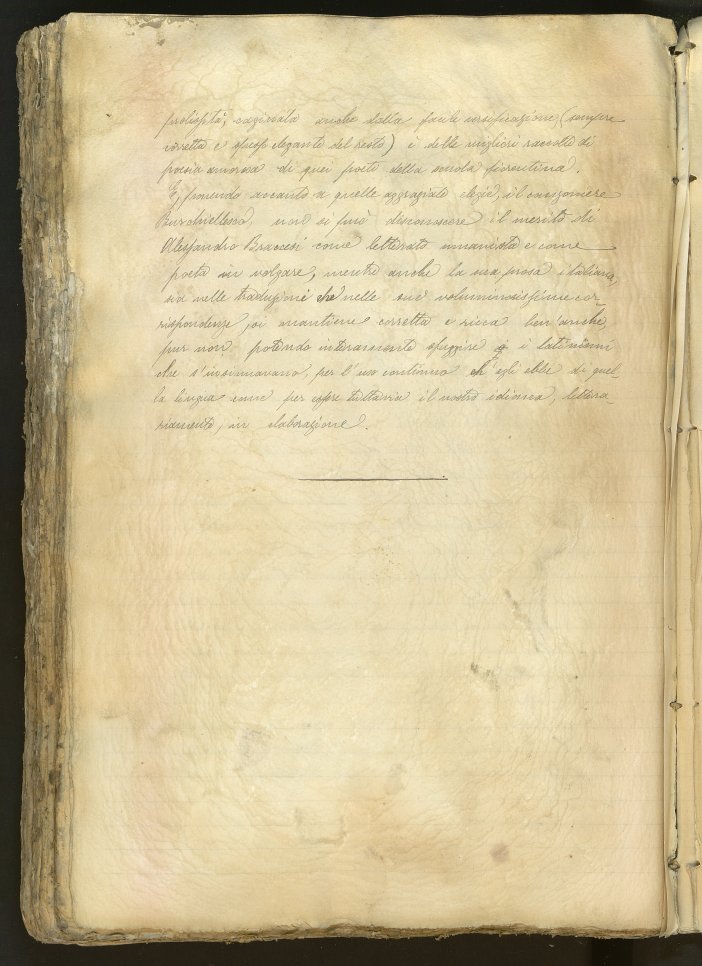 prolissità, cagionata anche dalla facile versificazione (sempre
corretta e spesso elegante del resto) è delle migliori raccolte di
poesia amorosa di quei poeti della scuola fiorentina.
E, ponendo accanto a quelle aggraziate elegie, il canzoniere
Burchiellesco, non si può disconoscere il merito di
Alessandro Braccesi come letterato umanista e come
poeta in volgare, mentre anche la sua prosa italiana,
sia nelle traduzioni che nelle sue voluminosissime cor-
rispondenze, si mantiene corretta e ricca ben'anche,
pur non potendo interamente sfuggire i latinismi
che s'insinuavano, per l'uso continuo ch'egli ebbe di quel-
la lingua come per essere tuttavia il nostro idioma, lettera-
riamente, in elaborazione.